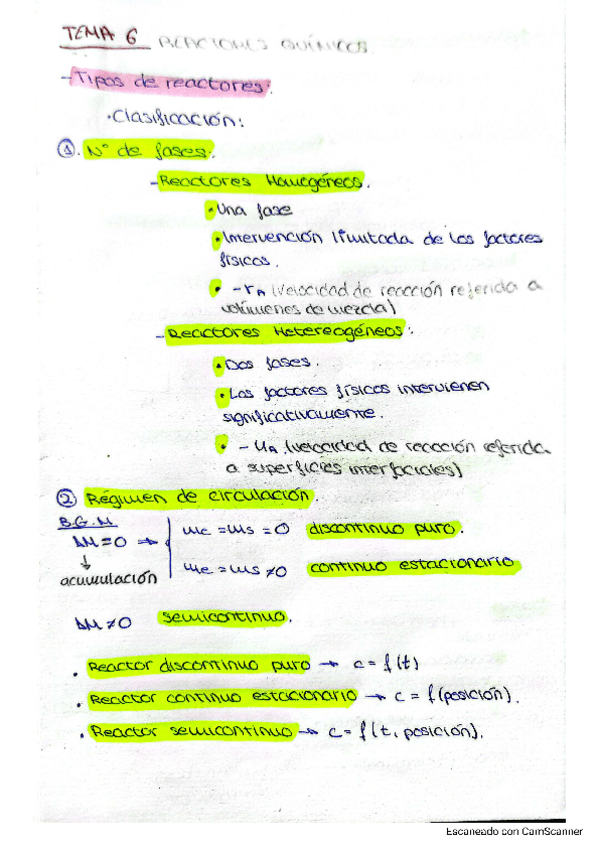 TEMA 6 REACTORES QUÍMICOS.
- Tipos de reactores:
• Clasificación:
①. Nº de fases:
- Reactores Homogéneos.
• Una fase
• Intervención limitada de los factores
físicos.
• -rA (velocidad de reacción referida a
volúmenes de mezcla)
- Reactores Hetereogéneos:
• Dos fases.
• Los factores físicos intervienen
significativamente.
• -UA (velocidad de reacción referida
a superficies interfaciales)
② Régimen de circulación.
B.G.M
ΔM = 0 → me = ms = 0 discontinuo puro.
↓
acumulación me = ms ≠ 0 continuo estacionario
ΔM ≠ 0 semicontinuo.
• Reactor discontinuo puro → c = f(t)
• Reactor continuo estacionario → c = f(posición).
• Reactor semicontinuo → c = f(t, posición).
Escaneado con CamScanner